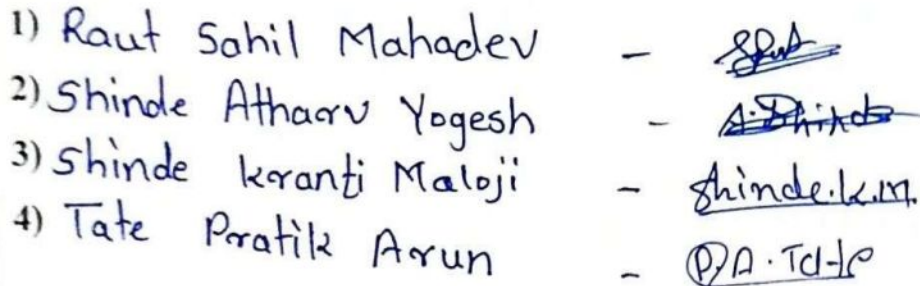 1) Raut Sahil Mahadev -
2) Shinde Atharv Yogesh - A.Shinde
3) Shinde kranti Maloji - Shinde.k.m.
4) Tate Pratik Arun - P.A.Tate